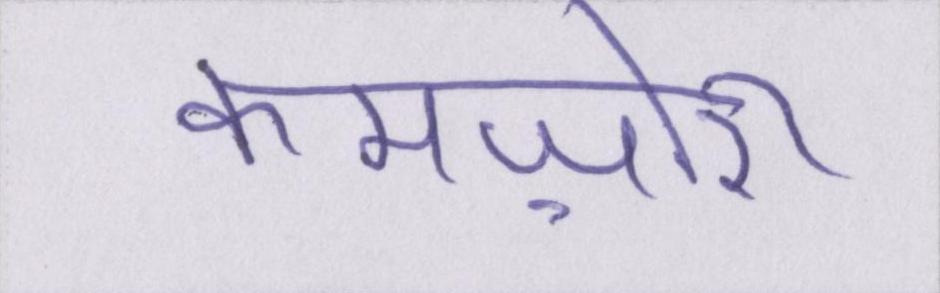 कमज़ोरी